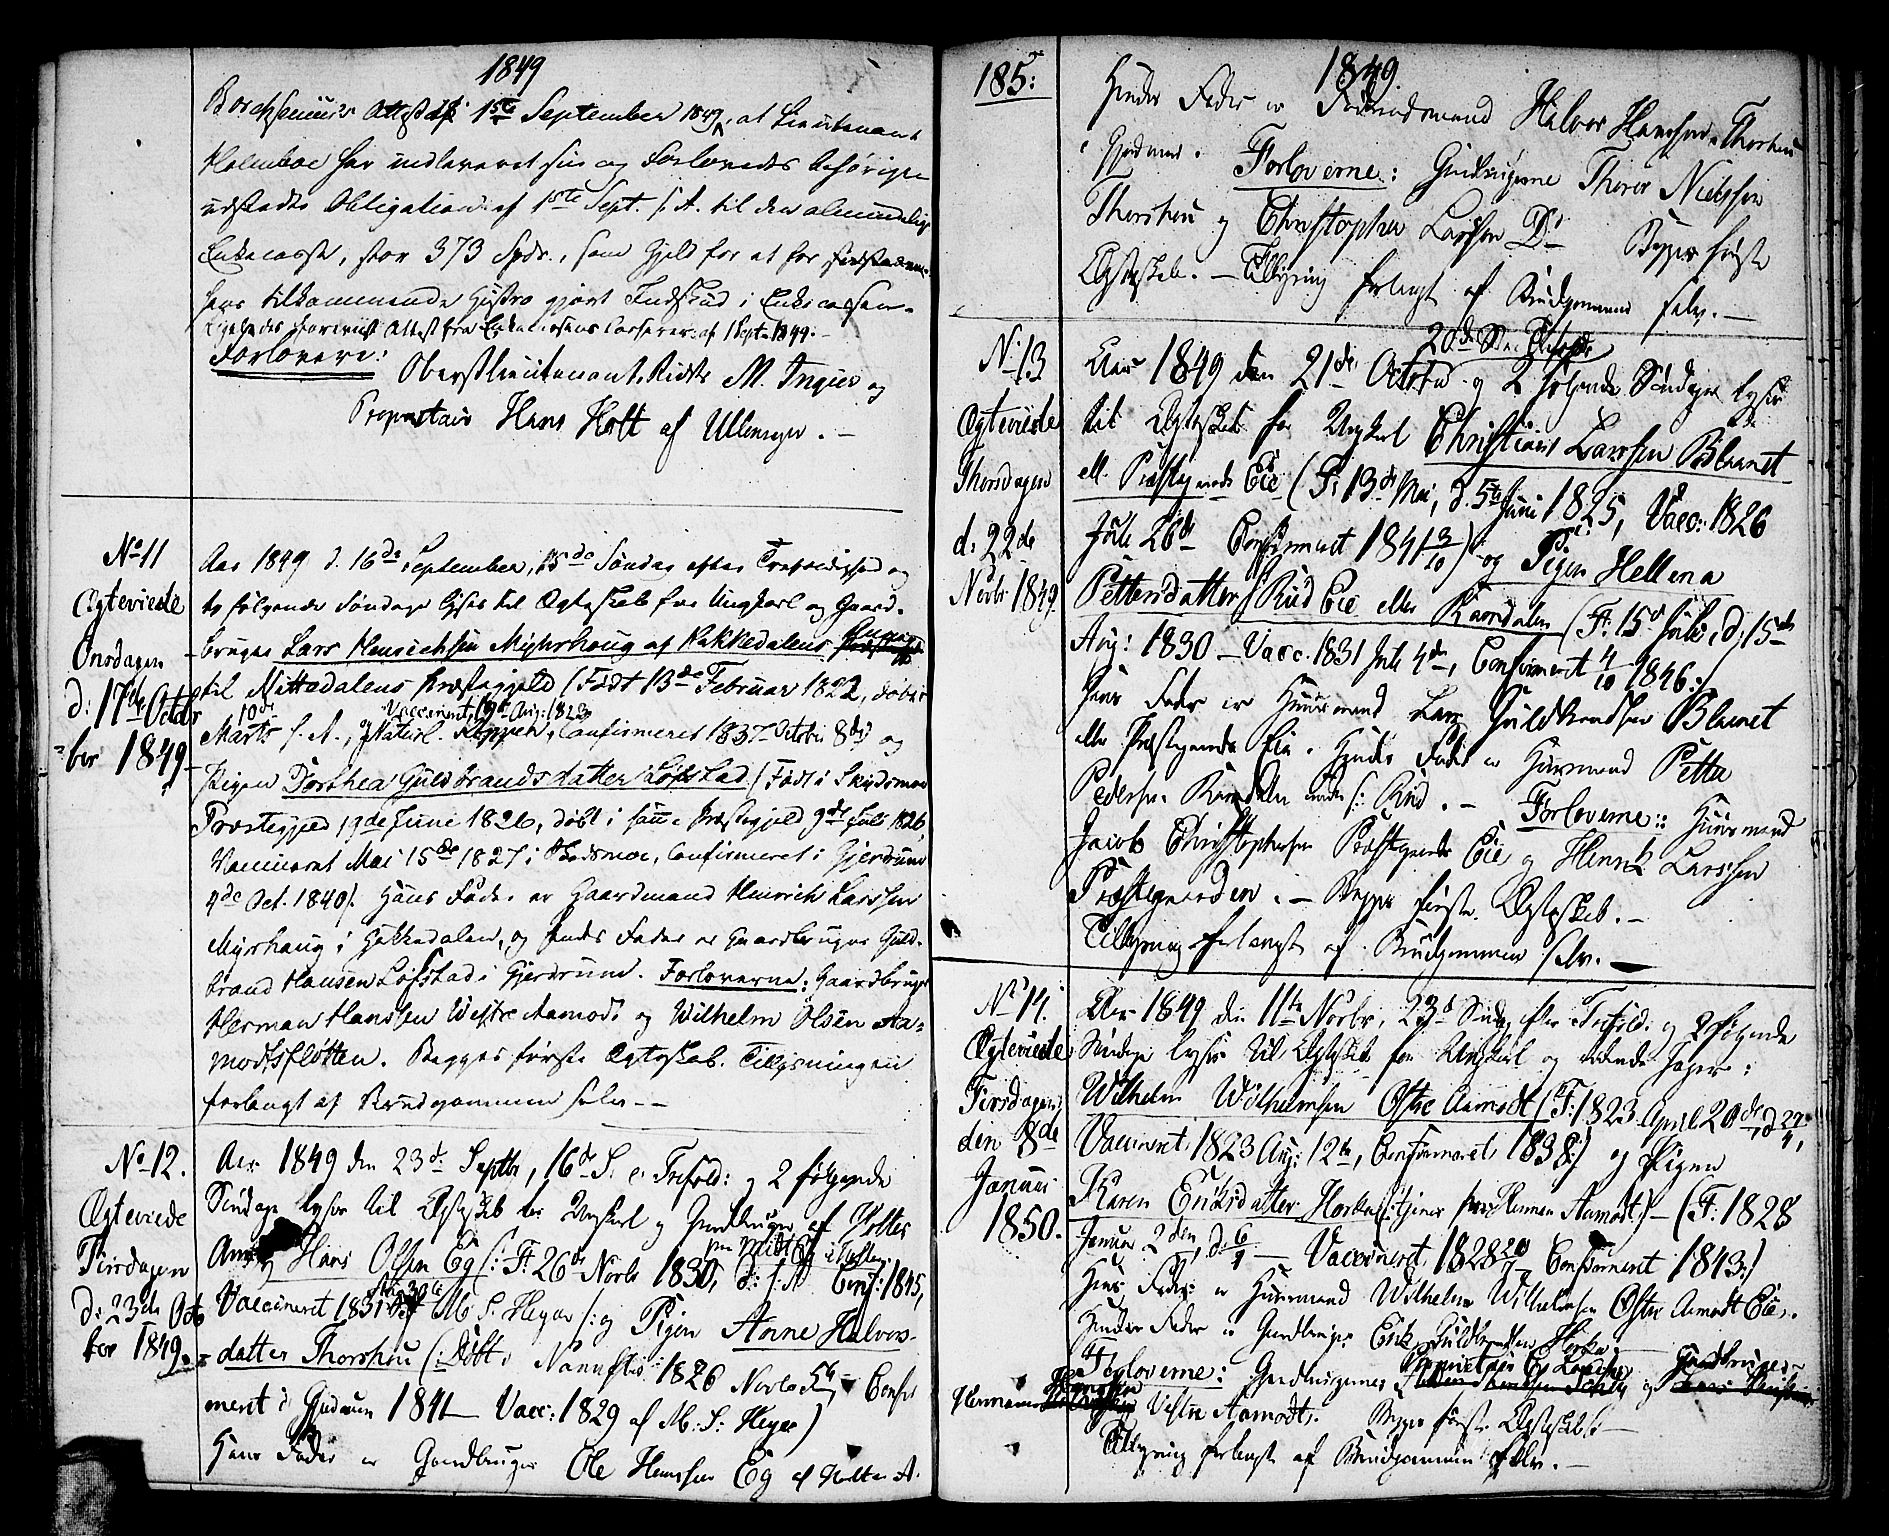 1849
Borchsenius Attest af 1ste September 1849, at Lieutenant
Holmboe har indleveret sin og Forlovedes behørigen
udstædte Obligation af 1ste Sept. s. A. til den almindelige
Enkecasse, stor 373 Spdr., som Gjeld for at for
hans tilkommende Hustro gjort Indskud i Enkecassen.
Attest fra Enkecassens Casserer af 1 Sept. 1849.
Forlovere: Oberstlieutenant, Ridder M. Ingier og
Proprietair Hans Holt af Ullensager. —
No 11
Ægteviede
Onsdagen
d: 17de Octo
ber 1849
Aar 1849 d. 16de September, 15de Søndag efter Trefoldighed og
to følgende Søndage lyses til Ægteskab for Ungkarl og Gaard-
bruger Lars Henrichsen Myhrhaug af Hakkedalens
til Nittedalens Præstegjeld (Født 13de Februar 1822, døbt
10de Vaccineret 19de Aug: 1823
Marts s. A., Naturl. Kopper, Confirmeret 1837 October 8de) og
Pigen Dorthea Guldbrandsdatter Løfstad (Født i Skydsmoe
Præstegjeld 19de Juni 1826, døbt i samme Præstegjeld 9de Juli 1826,
Vaccineret Mai 15de 1827 i Skedsmoe, Confirmeret i Gjerdrum
4de Oct. 1840). Hans Fader er Gaardmand Henrich Larssen
Myrhaug i Hakkedalen, og hendes Fader er Gaardbruger Guld-
brand Hansen Løfstad i Gjerdrum. Forloverne: Gaardbruger
Herman Hanssen Westre Aamodt og Wilhelm Olsen Aa-
modtsfløtten. Begges første Ægteskab. Tillysningen
forlangt af Brudgommen selv. —
No 12.
Ægteviede
Tirsdagen
d: 23de Octo
ber 1849.
Aar 1849 den 23de Septbr, 16de S. e. Trefold: og 2 følgende
Søndage lyses til Ægteskab for Ungkarl og Gaardbruger af Holter
Hans Olsen Eg (: F: 26de Novbr 1830, d: s: A Conf: 1845,
Vaccineret 1831 M. S. Heyer :) og Pigen Anne Halvors-
datter Thorshou (: Født i Nannestad 1826 Novbr 5te Confir
meret i Gjerdrum 1841 — Vacc: 1829 af M: S: Heyer)
Hans Fader er Gaardbruger Ole Hanssen Eg af Holter A.
185:
1849
Hendes Fader er Halvor Hanssen Thorshou
i Gjerdrum. Forloverne: Gaardbrugerne Thorer Nielssen
Thorshou og Christopher Larssen Do Begges første
Ægteskab. — Tillysning forlangt af Brudgommen selv. —
No 13
Ægteviede
Thorsdagen
d: 22de
Novbr 1849.
Aar 1849 den 21de October og 2 følgende Søndage lyses
til Ægteskab for Ungkarl Christian Larssen Blanet
ell. Præstegaards Eie (F: 13de Mai, d. 5te Juni 1825, Vacc: 1826
Juli 26de Confirmeret 1841 3/10) og Pigen Hellena
Pettersdatter Rud Eie eller Ramdalen (F: 15de Juli, d: 15de
Aug: 1830 — Vacc. 1831 Juli 4de, Confirmeret 4/10 1846:)
Hans Fader er Huusmand Lars Guldbrandsen Blanet
eller Præstegaards Eie. Hendes Fader er Huusmand Petter
Pedersen Ramdalen Rud. — Forloverne: Huusmand
Jacob Christophersen Præstgaards Eie og Henrik Larssen
Præstegaarden. — Begges første Ægteskab. —
Tillysning forlangt af Brudgommen selv. —
No 14.
Ægteviede
Tirsdagen
den 8de
Januar
1850.
Aar 1849 den 11te Novbr, 23de Søndag efter Trefold: og 2 følgende
Søndage lyses til Ægteskab for Ungkarl og Jæger:
Wilhelm Wilhelmsen Østre Aamodt (F: 1823 April 20de, d 27/4,
Vaccineret 1823 Aug: 12te, Confirmeret 1838:) og Pigen
Karen Eriksdatter (: tjener hos Herman Aamodt:) — (F: 1828
Januar 2den, d. 6/1 — Vaccineret 1828 Confirmeret 1843:)
Hans Fader er Huusmand Wilhelm Wilhelmsen Østre Aamodt Eie.
Hendes Fader er Gaardbruger Erik Guldbrandsen
Forloverne: Gaardbrugerne og
Herman Vestre Aamodt. Begges første Ægteskab: —
Tillysning forlangt af Brudgommen selv. —